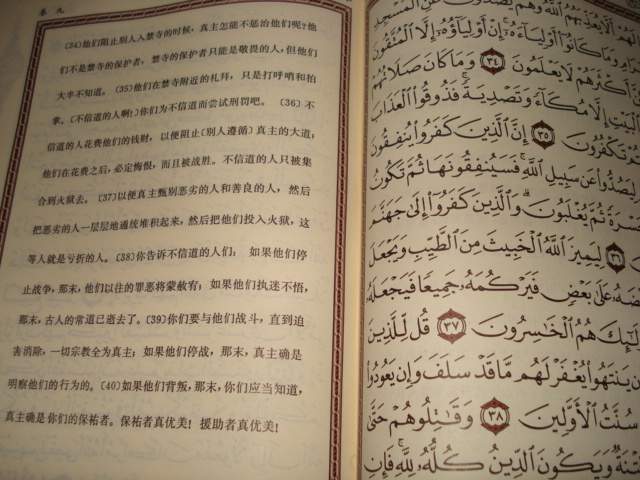 卷 九
(34)他们阻止别人入禁寺的时候，真主怎能不惩治他们呢?他
们不是禁寺的保护者，禁寺的保护者只能是敬畏的人，但他们
大半不知道。(35)他们在禁寺附近的礼拜，只是打呼哨和拍
掌。(不信道的人啊!)你们为不信道而尝试刑罚吧。 (36)不
信道的人花费他们的钱财，以便阻止(别人遵循)真主的大道;
他们在花费之后，必定悔恨，而且被战胜。不信道的人只被集
合到火狱去。(37)以便真主甄别恶劣的人和善良的人，然后
把恶劣的人一层层地通统堆积起来，然后把他们投入火狱，这
等人就是亏折的人。(38)你告诉不信道的人们： 如果他们停
止战争，那末，他们以往的罪恶将蒙赦宥；如果他们执迷不悟，
那末，古人的常道已逝去了。(39)你们要与他们战斗，直到迫
害消除，一切宗教全为真主；如果他们停战，那末，真主确是
明察他们的行为的。(40)如果他们背叛，那末，你们应当知道，
真主确是你们的保祐者。保祐者真优美! 援助者真优美!
لَهُمْ أَلَّا يُعَذِّبَهُمُ ٱللَّهُ وَهُمْ يَصُدُّونَ عَنِ ٱلْمَسْجِدِ
وَمَا كَانُوٓا۟ أَوْلِيَآءَهُۥٓ إِنْ أَوْلِيَآؤُهُۥٓ إِلَّا ٱلْمُتَّقُونَ
أَكْثَرَهُمْ لَا يَعْلَمُونَ ٣٤ وَمَا كَانَ صَلَاتُهُمْ
ٱلْبَيْتِ إِلَّا مُكَآءً وَتَصْدِيَةً فَذُوقُوا۟ ٱلْعَذَابَ
تَكْفُرُونَ ٣٥ إِنَّ ٱلَّذِينَ كَفَرُوا۟ يُنفِقُونَ
لِيَصُدُّوا۟ عَن سَبِيلِ ٱللَّهِ فَسَيُنفِقُونَهَا ثُمَّ تَكُونُ
حَسْرَةً ثُمَّ يُغْلَبُونَ وَٱلَّذِينَ كَفَرُوٓا۟ إِلَىٰ جَهَنَّمَ
٣٦ لِيَمِيزَ ٱللَّهُ ٱلْخَبِيثَ مِنَ ٱلطَّيِّبِ وَيَجْعَلَ
بَعْضَهُۥ عَلَىٰ بَعْضٍ فَيَرْكُمَهُۥ جَمِيعًا فَيَجْعَلَهُۥ
أُو۟لَٰٓئِكَ هُمُ ٱلْخَٰسِرُونَ ٣٧ قُل لِّلَّذِينَ
إِن يَنتَهُوا۟ يُغْفَرْ لَهُم مَّا قَدْ سَلَفَ وَإِن يَعُودُوا۟
سُنَّتُ ٱلْأَوَّلِينَ ٣٨ وَقَٰتِلُوهُمْ حَتَّىٰ
فِتْنَةٌ وَيَكُونَ ٱلدِّينُ كُلُّهُۥ لِلَّهِ فَإِنِ